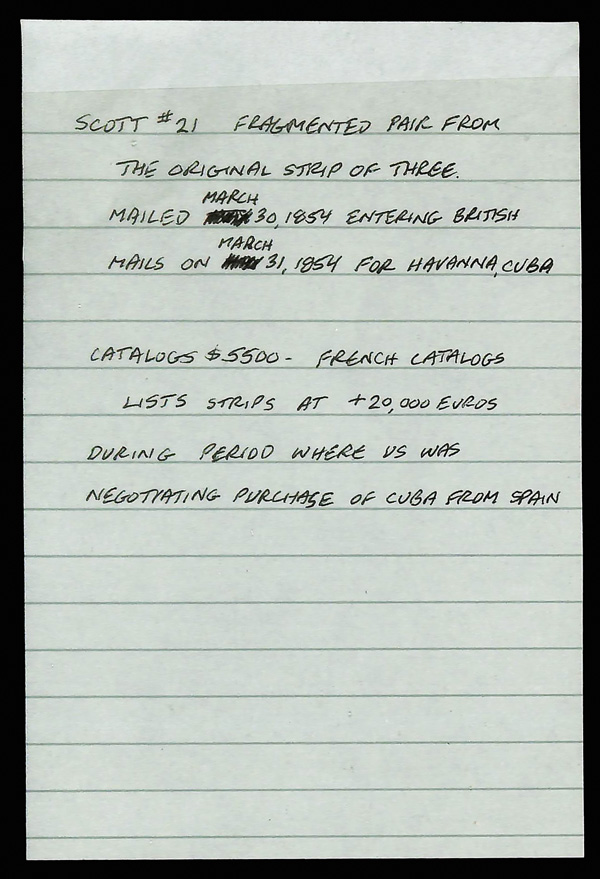 SCOTT #21 FRAGMENTED PAIR FROM
THE ORIGINAL STRIP OF THREE.
MARCH
MAILED 30, 1854 ENTERING BRITISH
MARCH
MAILS ON 31, 1954 FOR HAVANNA, CUBA
CATALOGS $5500- FRENCH CATALOGS
LISTS STRIPS AT +20,000 EUROS
DURING PERIOD WHERE US WAS
NEGOTIATING PURCHASE OF CUBA FROM SPAIN